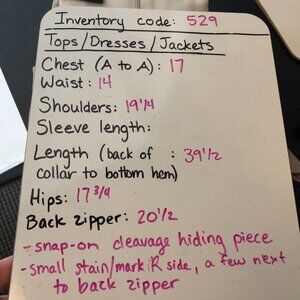 Inventory code: 529
Tops/Dresses/Jackets
Chest (A to A): 17
Waist: 14
Shoulders: 19 1/4
Sleeve length:
Length (back of : 39 1/2
collar to bottom hem)
Hips: 17 3/4
Back zipper: 20 1/2
-snap-on cleavage hiding piece
-small stain/mark R side, a few next
to back zipper